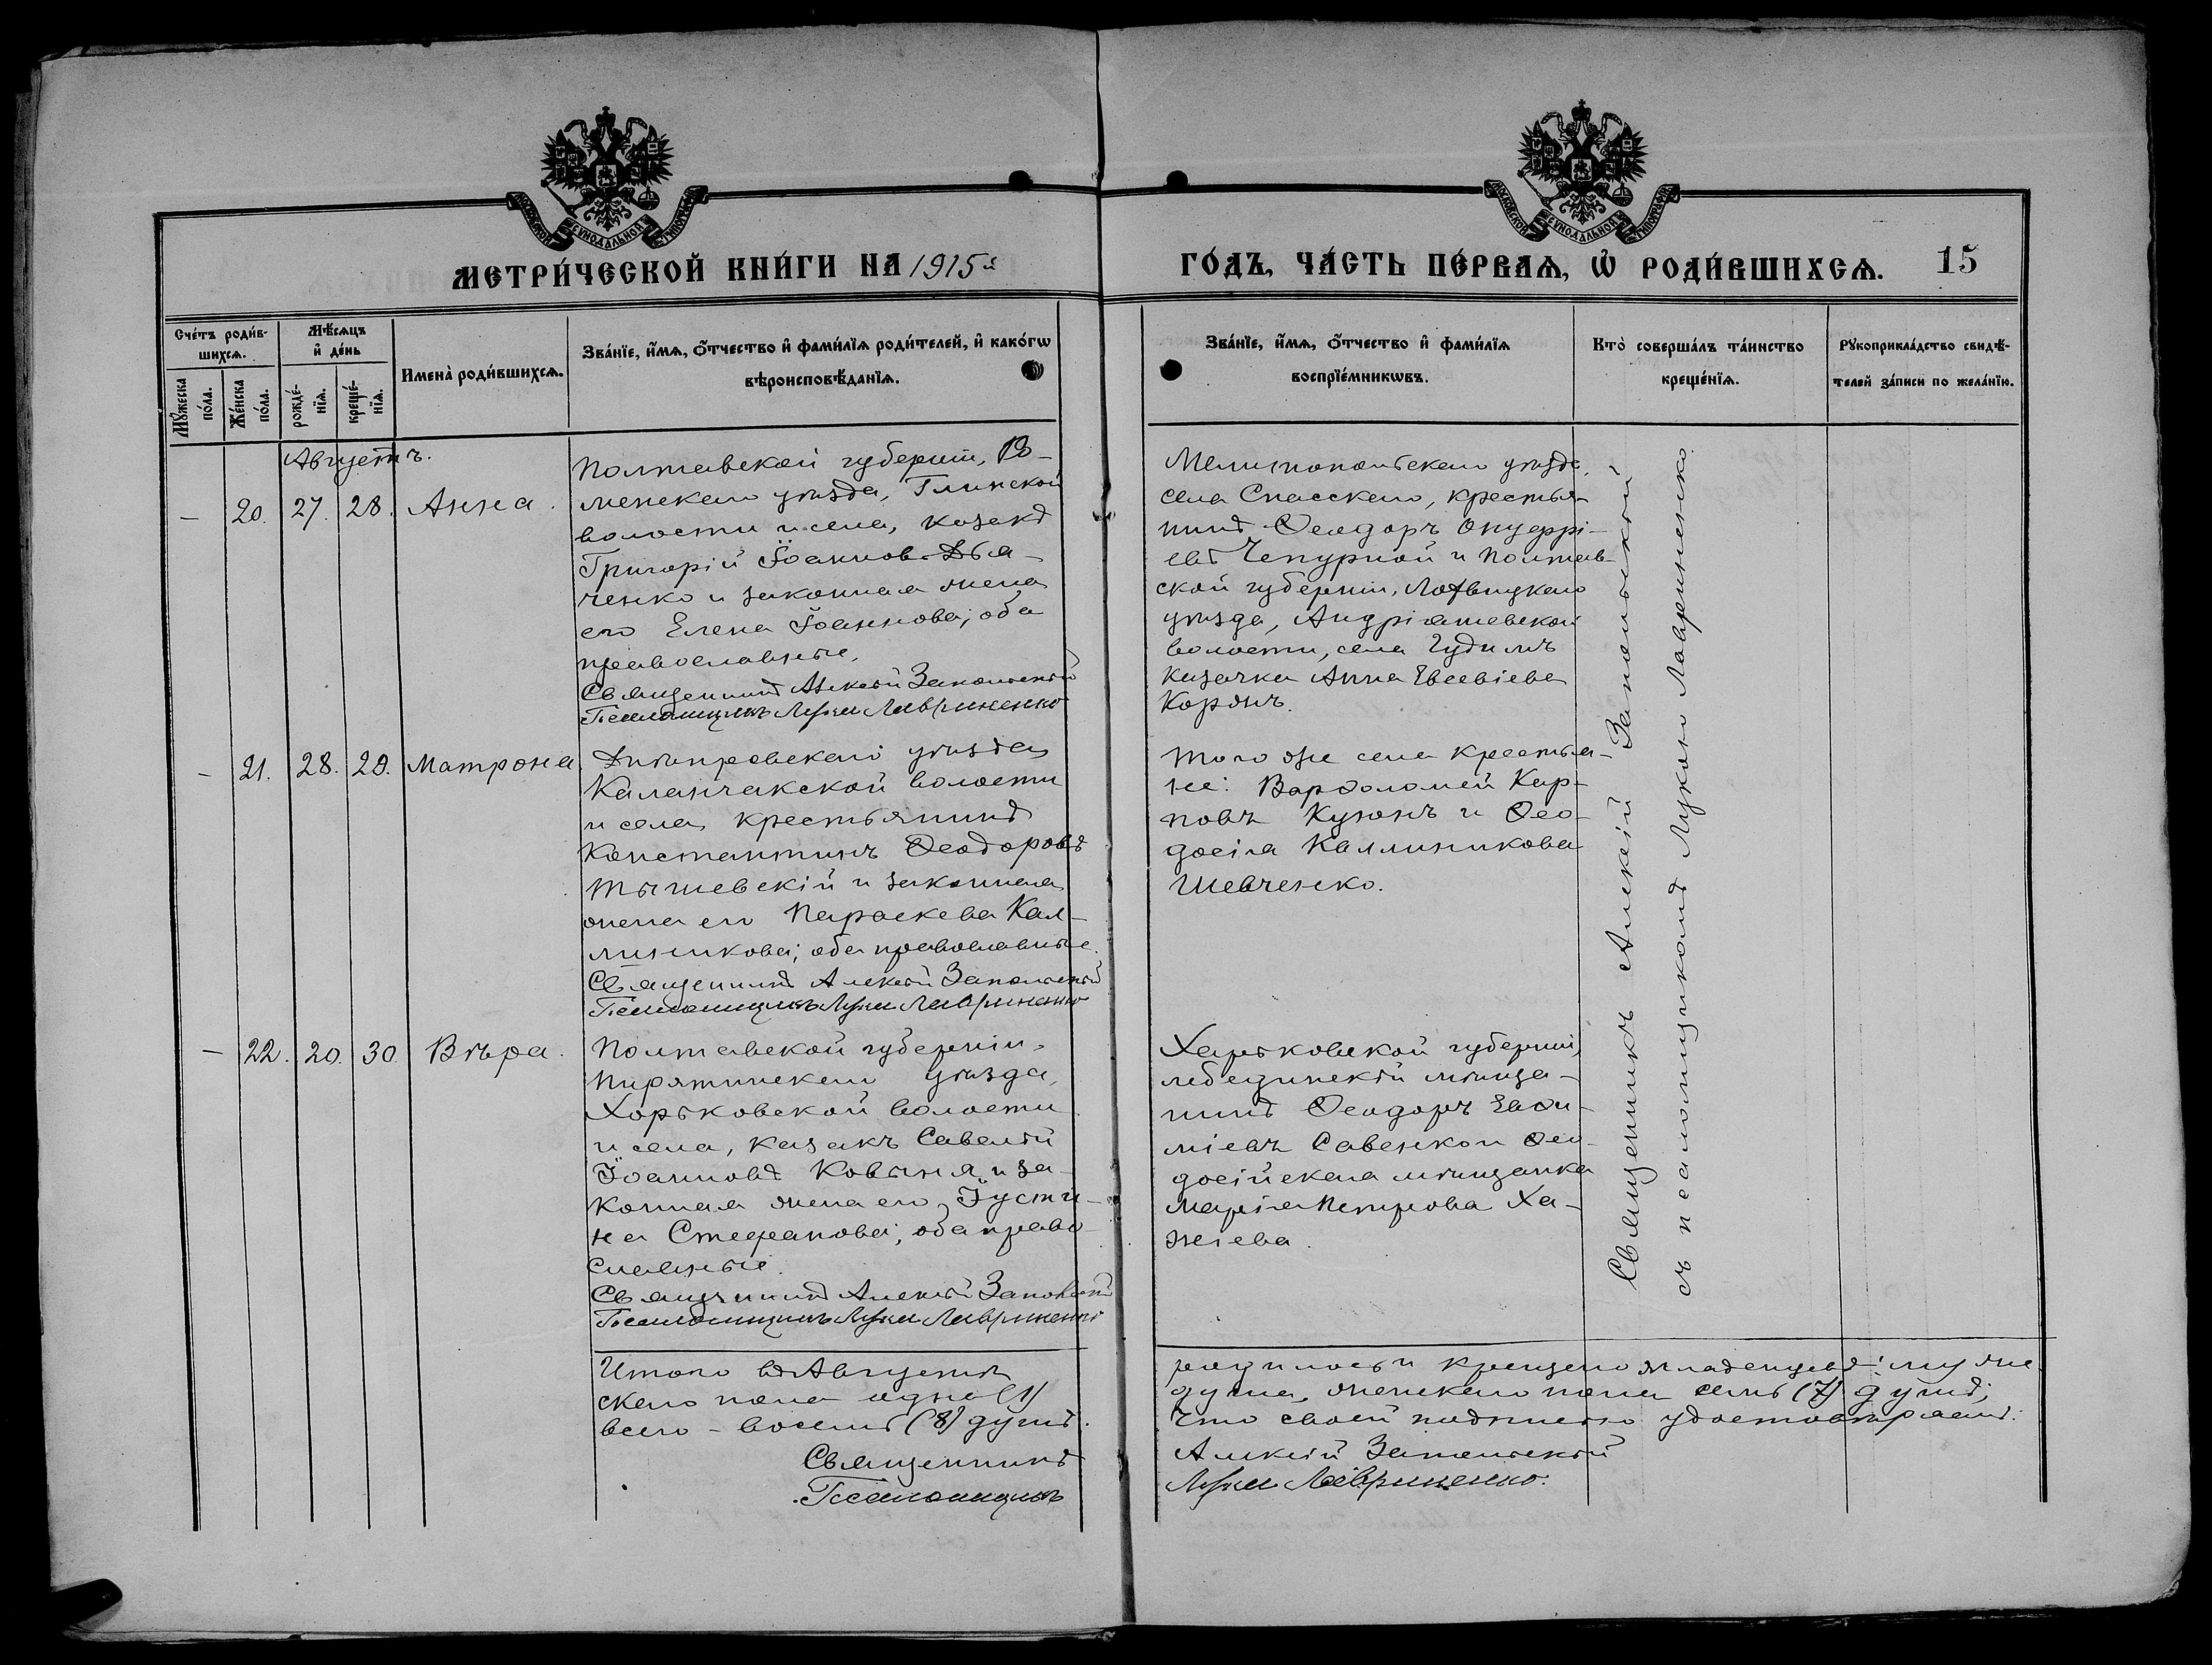 МЕТРИ́ЧЕСКОЙ КНИ́ГИ НА 1915й
ГО́ДЪ, ЧА́СТЬ ПЕ́РВАѦ, Ѡ҆ РОДИ́ВШИХСѦ. 15
Сче́тъ роди́в-
шихсѧ.
Мꙋ́жеска
по́ла.
Же́нска
по́ла.
Мѣ́сѧцъ
и҆ де́нь
рожде́-
нїѧ.
креще́-
нїѧ.
Имена̀ роди́вшихсѧ.
Зва́нїе, и҆́мѧ, ѻ҆́тчество и҆ фами́лїѧ роди́телей, и҆ како́гѡ
вѣроисповѣ́данїѧ.
Зва́нїе, и҆́мѧ, ѻ҆́тчество и҆ фами́лїѧ
воспрїе́мникѡвъ.
Кто̀ соверша́лъ та́инство
креще́нїѧ.
Рꙋкоприкла́дство свидѣ́-
телей за́писи по жела́нїю.
Августъ.
— 20. 27. 28. Анна.
Полтавской губерніи, Ро-
менскаго уѣзда, Глинской
волости и села, козакъ
Григорій Іоанновъ Дья-
ченко и законная жена
его Елена Іоаннова; оба
православные.
Священникъ Алексій Запольскій
Псаломщикъ Лука Лавриненко
Мелитопольскаго уѣзда,
села Спасскаго, крестья-
нинъ Ѳеодоръ Онуфрі-
евъ Чепурной и Полтав-
ской губерніи, Лохвицкаго
уѣзда, Андріяшевской
волости, села Гудимъ
казачка Анна Евсевіева
Коржъ.
— 21. 28. 29. Матрона
Днѣпровскаго уѣзда,
Каланчакской волости
и села, крестьянинъ
Константинъ Ѳеодоровъ
Тышевскій и законная
жена его Параскева Кал-
линикова; оба православные.
Священникъ Алексій Запольскій
Псаломщикъ Лука Лавриненко
Того же села крестья-
не: Варѳоломей Кар-
повъ Кузонъ и Ѳео-
досія Каллиникова
Шевченко.
— 22. 20. 30. Вѣра.
Полтавской губерніи,
Пирятинскаго уѣзда,
Харьковской волости
и села, казакъ Савелій
Іоанновъ Ковыня и за-
конная жена его Іусти-
на Стефанова; оба право-
славные.
Священникъ Алексій Запольскій
Псаломщикъ Лука Лавриненко
Харьковской губерніи,
лебединскій мѣща-
нинъ Ѳеодоръ Евѳи-
міевъ Савенко и Ѳео-
досійская мѣщанка
Марія Петрова Ха-
жіева.
Священникъ Алексій Запольскій
съ псаломщикомъ Лукою Лавриненко.
Итого въ Августѣ родилось и крещено младенцевъ: муже-
скаго пола одна (1) душа, женскаго пола семь (7) душъ;
всего – восемь (8) душъ. Что своей подписью удостовѣряемъ:
Священникъ Алексій Запольскій
Псаломщикъ Лука Лавриненко.